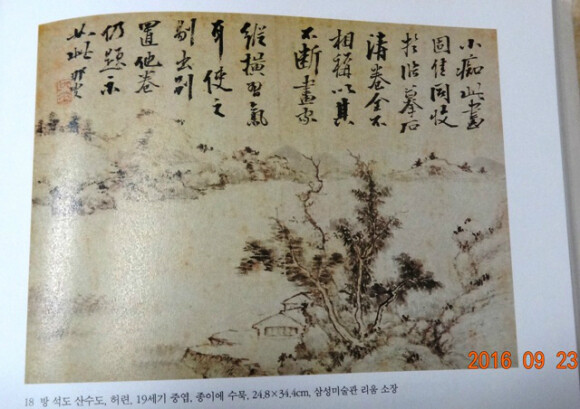 小癡此畫
固佳同收
於臨摹石
濤卷全不
相稱以其
不斷畫家
縱橫習氣
耳使之
剔出別
置他卷
仍題示
如此
18 방 석도 산수도, 허련, 19세기 중엽, 종이에 수묵, 24.8×34.4cm, 삼성미술관 리움 소장
2016 09 23